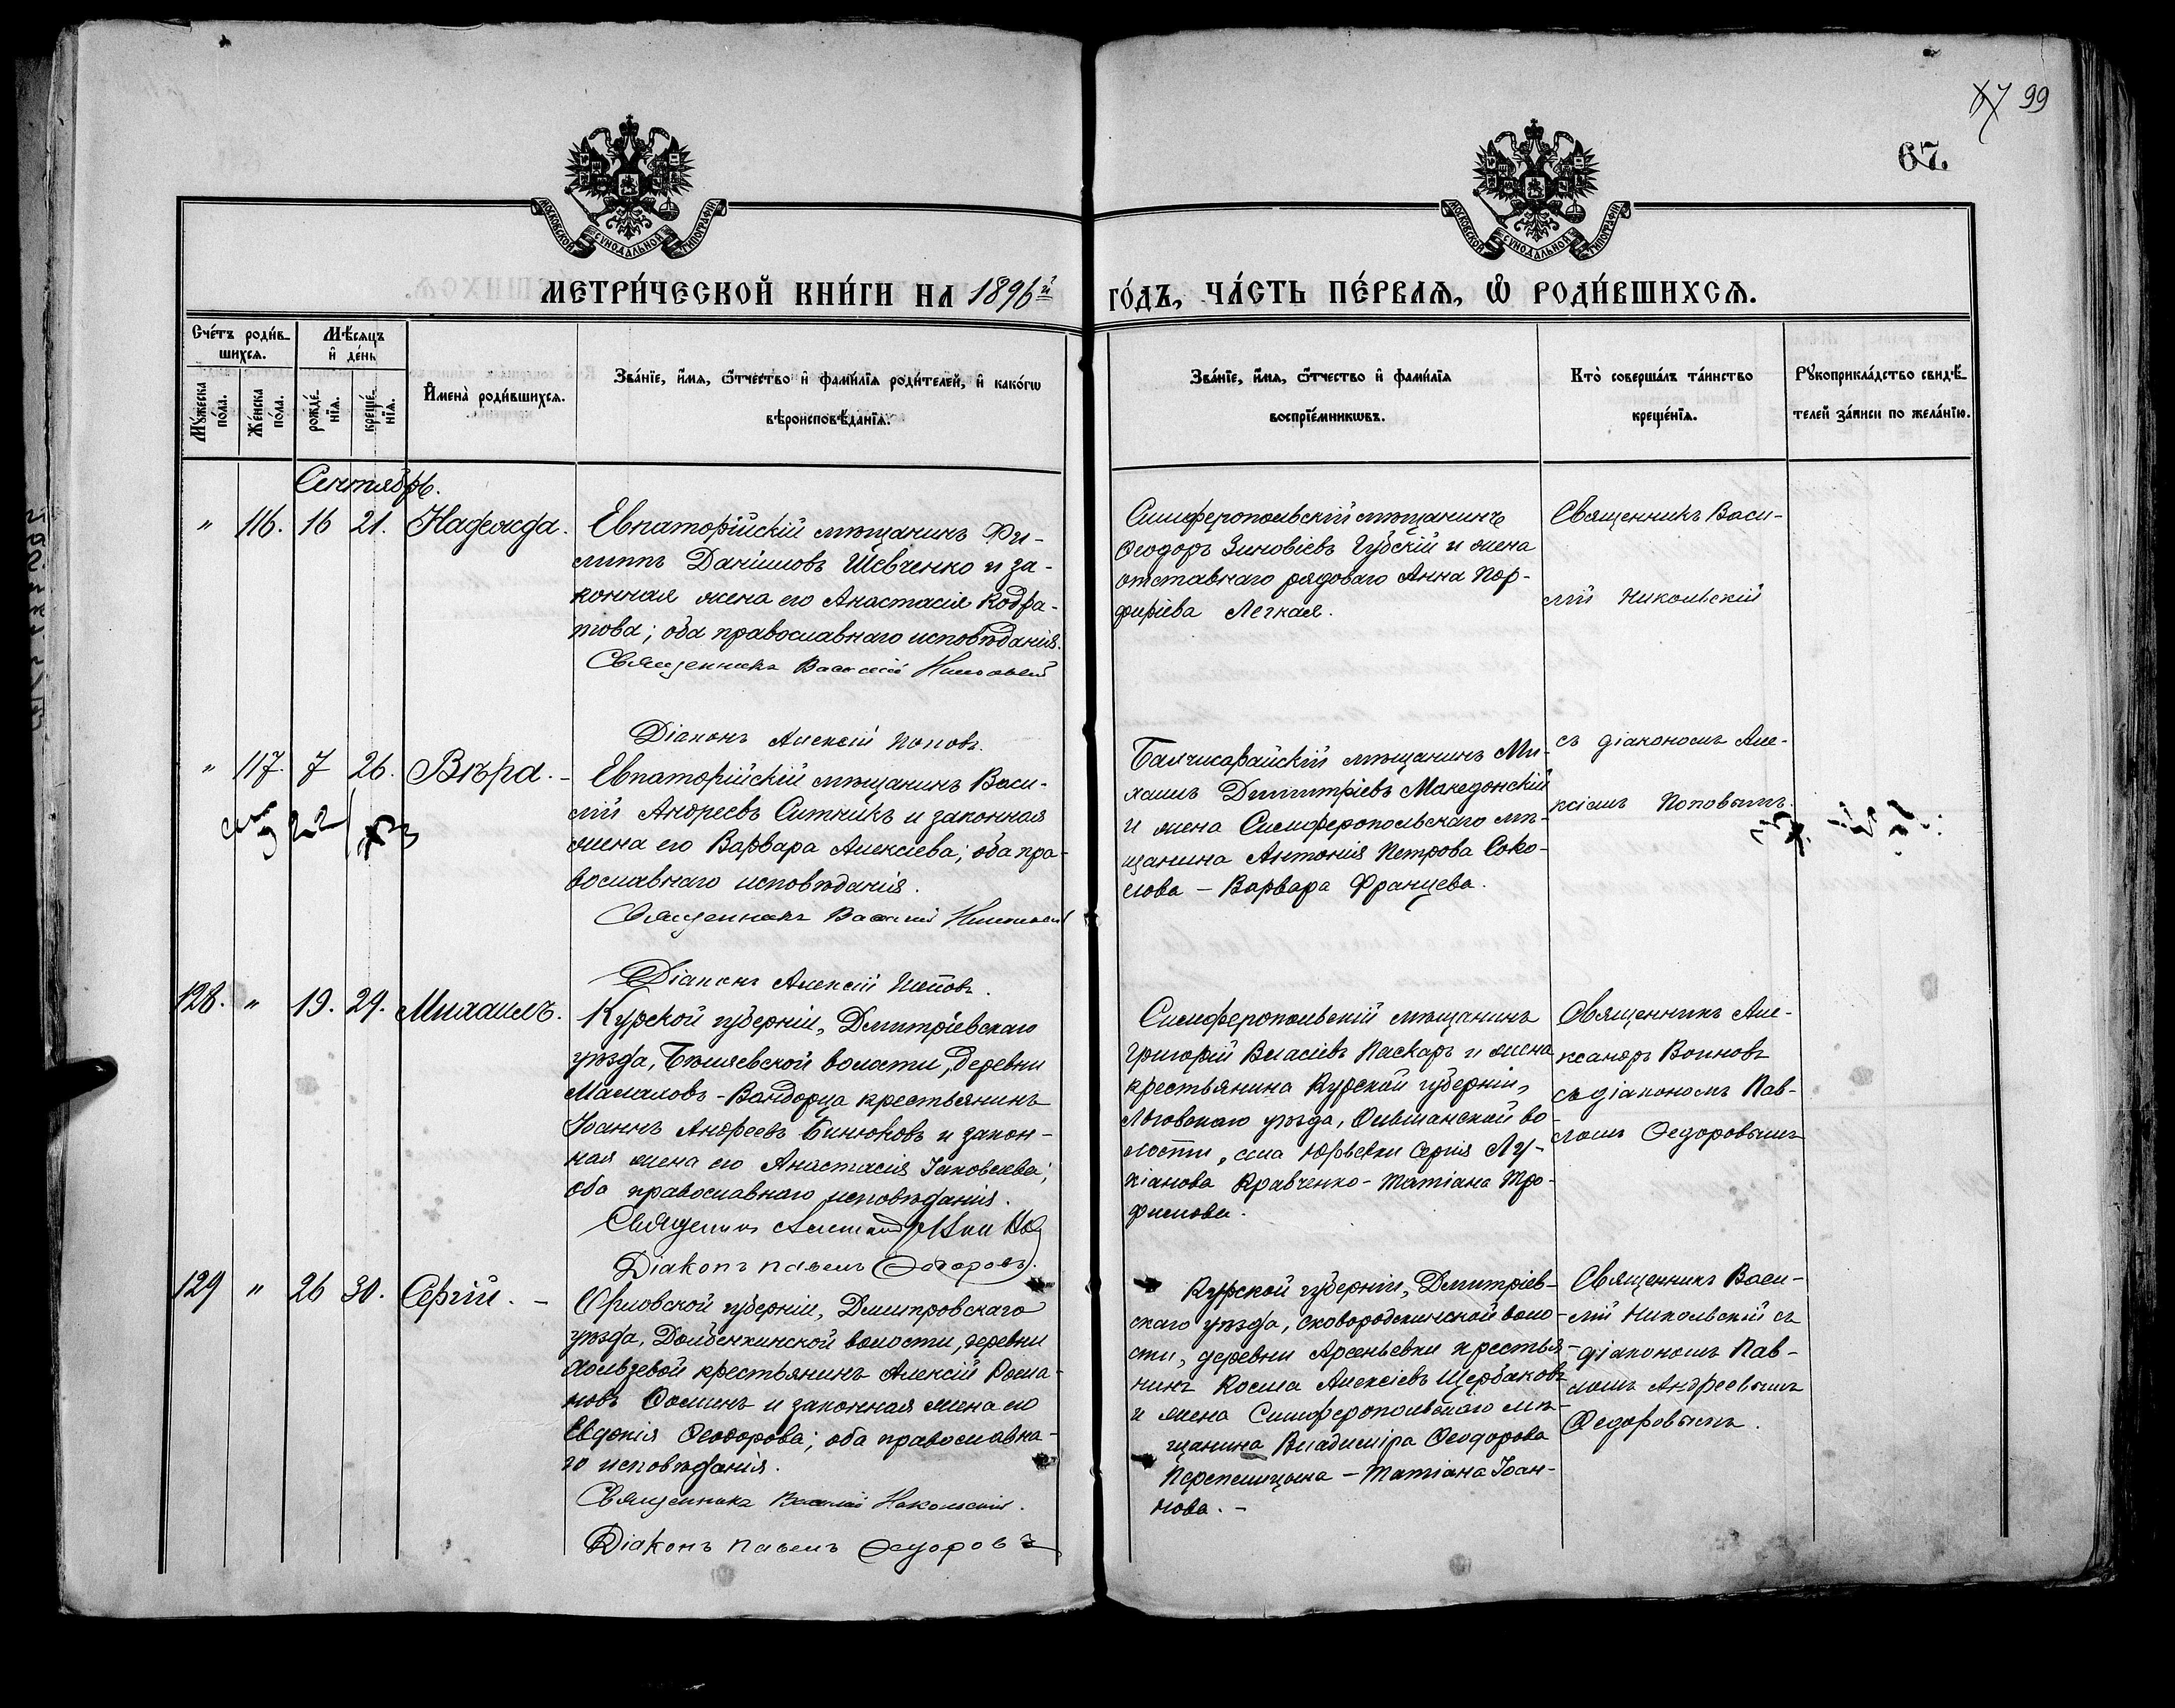 67 99
67.
МОСКОВСКОЙ СѴНОДАЛЬНОЙ ТИПОГРАФІИ
МОСКОВСКОЙ СѴНОДАЛЬНОЙ ТИПОГРАФІИ
МЕТРИ́ЧЕСКОЙ КНИ́ГИ НА 1896й
ГО́ДЪ, ЧА́СТЬ ПЕ́РВАѦ, Ѡ҆ РОДИ́ВШИХСѦ.
Сче́тъ роди́в-
шихсѧ.
Мꙋ́жеска
по́ла.
Же́нска
по́ла.
Мѣ́сяцъ
и҆ де́нь
рожде́-
нїѧ.
креще́-
нїѧ.
И҆мена̀ роди́вшихсѧ.
Зва́нїе, и҆́мѧ, ѻ҆́тчество и҆ фами́лїѧ роди́телей, и҆ како́гѡ
вѣроисповѣ́данїѧ.
Зва́нїе, и҆́мѧ, ѻ҆́тчество и҆ фами́лїѧ
воспрїе́мникѡвъ.
Кто̀ соверша́лъ та́инство
креще́нїѧ.
Рꙋкоприкла́дство свидѣ́-
телей за́писи по жела́нїю.
Сентябрь.
" 116. 16 21. Надежда.
Евпаторійскій мѣщанинъ Фи-
липпъ Даніиловъ Шевченко и за-
конная жена его Анастасія Кодра-
това; оба православнаго исповѣданія.
Священникъ Василій Никольскій
Діаконъ Алексій Поповъ.
Симферопольскій мѣщанинъ
Ѳеодоръ Зиновіевъ Губскій и жена
отставнаго рядоваго Анна Пор-
фиріева Легкая.
Священникъ Васи-
лій Никольскій
съ діакономъ Але-
ксіемъ Поповымъ.
" 117. 7 26. Вѣра. -
Евпаторійскій мѣщанинъ Васи-
лій Андреевъ Ситникъ и законная
жена его Варвара Алексіева; оба пра-
вославнаго исповѣданія.
Священникъ Василій Никольскій
Діаконъ Алексій Поповъ.
Бахчисарайскій мѣщанинъ Ми-
хаилъ Димитріевъ Македонскій
и жена Симферопольскаго мѣ-
щанина Антонія Петрова Соко-
лова - Варвара Францева.
128. " 19. 29. Михаилъ.
Курской губерніи, Дмитріевскаго
уѣзда, Бѣляевской волости, деревни
Мамаловъ-Вандорца крестьянинъ
Іоаннъ Андреевъ Бинюковъ и закон-
ная жена его Анастасія Іаковлева;
оба православнаго исповѣданія.
Священникъ
Діаконъ Павелъ Ѳедоровъ.
Симферопольскій мѣщанинъ
Григорій Власіевъ Паскаръ и жена
крестьянина Курской губерніи,
Льговскаго уѣзда, Ольшанской во-
лости, села Юрьевки Сергія Лу-
кіанова Кравченко - Татіана Тро-
фимова.
Священникъ Але-
ксандръ Воиновъ
съ діакономъ Пав-
ломъ Ѳедоровымъ
129 " 26 30. Сергій. -
Орловской губерніи, Дмитровскаго
уѣзда, Долбенкинской волости, деревни
крестьянинъ Алексій Рома-
новъ Ѳоминъ и законная жена его
Евдокія Ѳеодорова; оба православна-
го исповѣданія.
Священникъ Василій Никольскій.
Діаконъ Павелъ Ѳедоровъ
Курской губерніи, Дмитріев-
скаго уѣзда, Сковороднинской воло-
сти, деревни Арсеньевки крестья-
нинъ Косма Алексіевъ Щербаковъ
и жена Симферопольскаго мѣ-
щанина Владиміра Ѳеодорова
Перепелицына - Татіана Іоан-
нова. -
Священникъ Васи-
лій Никольскій съ
діакономъ Пав-
ломъ Андреевымъ
Ѳедоровымъ.